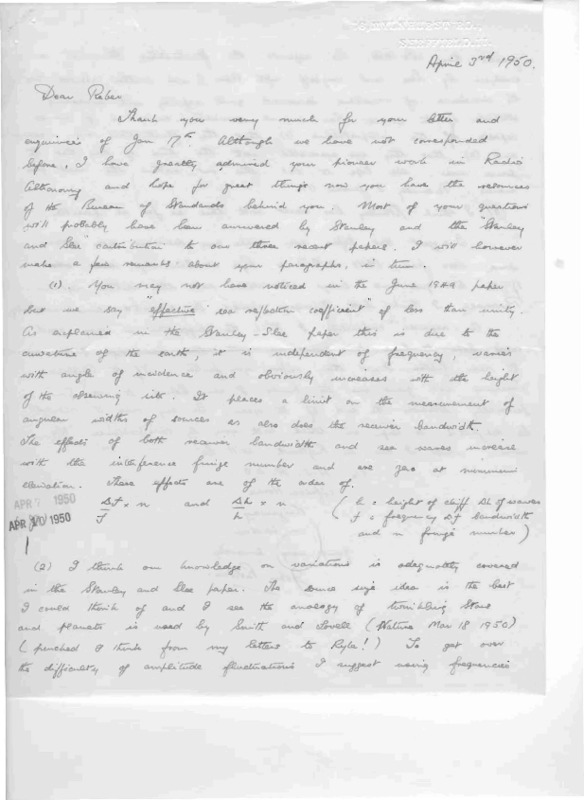 SHEFFIELD.
April 3rd 1950.
Dear Reber
Thank you very much for your letter and
enquiries of Jan 17th. Although we have not corresponded
before, I have greatly admired your pioneer work in Radio
Astronomy and hope for great things now you have the resources
of the Bureau of Standards behind you. Most of your questions
will probably have been answered by Stanley and the "Stanley
and Slee" contribution to our three recent papers. I will however
make a few remarks about your paragraphs, in turn.
(1). You may not have noticed in the June 1949 paper
but we say "effective" sea reflection coefficient of less than unity.
As explained in the Stanley-Slee paper this is due to the
curvature of the earth, it is independent of frequency, varies
with angle of incidence and obviously increases with the height
of the observing site. It places a limit on the measurement of
angular widths of sources as also does the receiver bandwidth.
The effects of both receiver bandwidth and sea waves increase
with the interference fringe number and are zero at minimum
elevation. These effects are of the order of.
APR 1950
Δf/f × n and Δh/h × n (h = height of cliff Δh of waves
APR 10 1950
f = frequency Δf bandwidth
and n fringe number)
(2) I think our knowledge on variations is adequately covered
in the Stanley and Slee paper. The source size idea is the best
I could think of and I see the analogy of twinkling stars
and planets is used by Smith and Lovell (Nature Mar 18 1950)
(pinched I think from my letters to Ryle!) To get over
the difficulty of amplitude fluctuations I suggest using frequencies